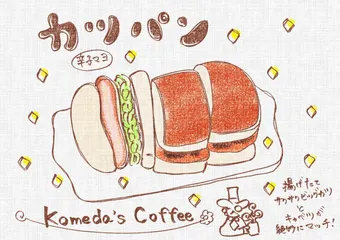 カツパン
辛子マヨ
Komeda's Coffee
揚げたて
サクサクビッグカツ
と
キャベツが
絶妙にマッチ!